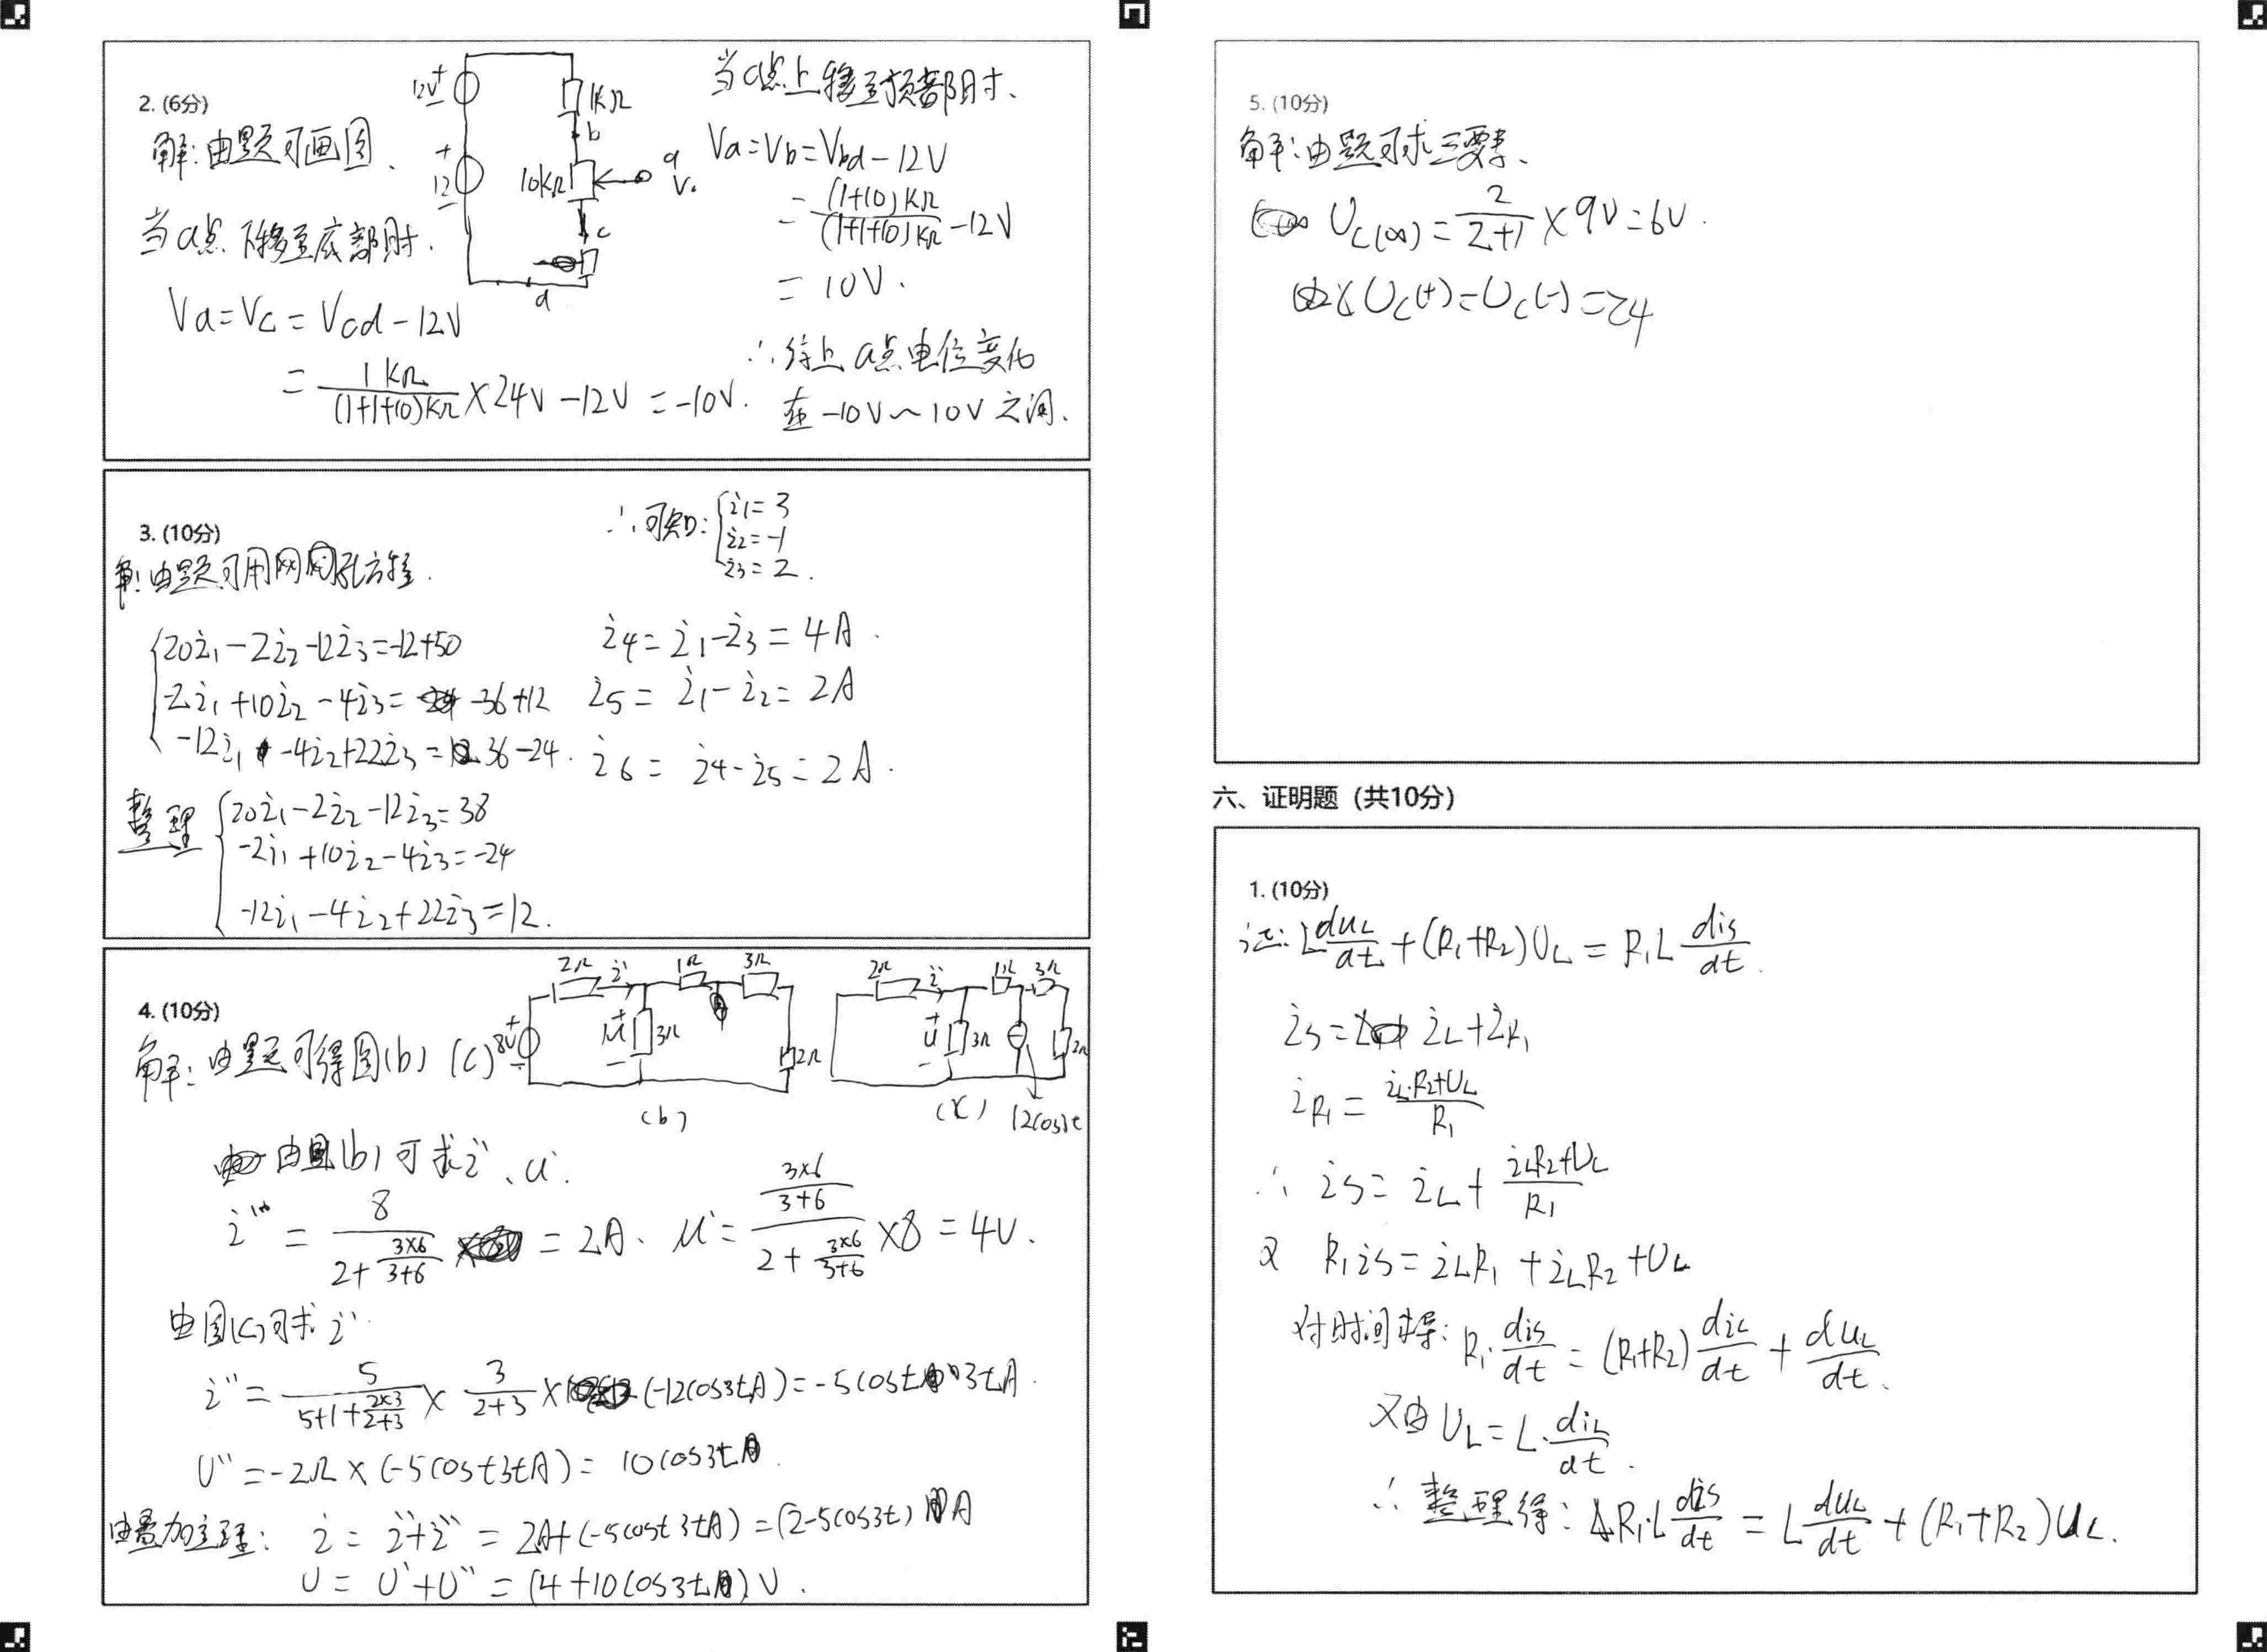 2. (6分)
解:由题可画图、
12V
+
-
1KΩ
b
+
12
-
10KΩ
a
V.
c
d
当a点下移至底部时.
Va=Vc=Vcd-12V
= 1KΩ/(1+1+10)KΩ ×24V-12V=-10V.
当a点上移至顶部时、
Va=Vb=Vbd-12V
= (1+10)KΩ/(1+1+10)KΩ -12V
= 10V.
∴综上a点电位变化
在-10V~10V之间.
3. (10分)
解:由题可用网孔方程.
{20i1-2i2-12i3=-12+50
-2i1+10i2-4i3= -36+12
-12i1-4i2+22i3= 36-24.
整理{20i1-2i2-12i3=38
-2i1+10i2-4i3=-24
-12i1-4i2+22i3=12.
∴可知:{i1=3
i2=-1
i3=2.
i4=i1-i3=4A.
i5=i1-i2=2A
i6=i4-i5=2A.
4. (10分)
解:由题可得图(b)(c)
2Ω i' 1Ω 3Ω
8V + - + u' - 3Ω 2Ω
(b)
2Ω i'' 1Ω 3Ω
+ u'' - 3Ω 2Ω
(c) 12cos3t
由图(b)可求i'、u'.
i' = 8/(2+(3×6)/(3+6)) =2A、u'= ((3×6)/(3+6))/(2+(3×6)/(3+6)) ×8=4V.
由图(c)可求i''
i''= 5/(5+1+(2×3)/(2+3)) × 3/(2+3) ×(-12cos3tA)=-5cost3tA.
U''=-2Ω×(-5cost3tA)=10cos3t
由叠加定理: i=i'+i''=2A+(-5cost3tA)=(2-5cos3t)A
U=U'+U''=(4+10cos3t)V.
5. (10分)
解:由题可求三要素、
Uc(∞)= 2/(2+1) ×9V=6V.
Uc(+)=Uc(-)=24
六、证明题（共10分）
1. (10分)
证: L duL/dt +(R1+R2)UL=R1L dis/dt.
is= iL+iR1
iR1= (iL·R2+UL)/R1
∴ is=iL+ (iLR2+UL)/R1
又 R1is=iLR1+iLR2+UL
对时间求导: R1· dis/dt =(R1+R2) diL/dt + duL/dt.
又由UL=L· diL/dt.
∴整理得: R1·L dis/dt =L duL/dt +(R1+R2)UL.